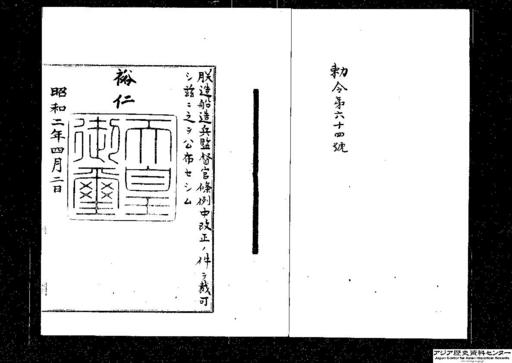 勅令第六十四號
朕造船造兵監督官條例中改正ノ件ヲ裁可
シ茲ニ之ヲ公布セシム
裕仁
天皇御璽
昭和二年四月二日
アジア歴史資料センター
Japan Center for Asian Historical Records